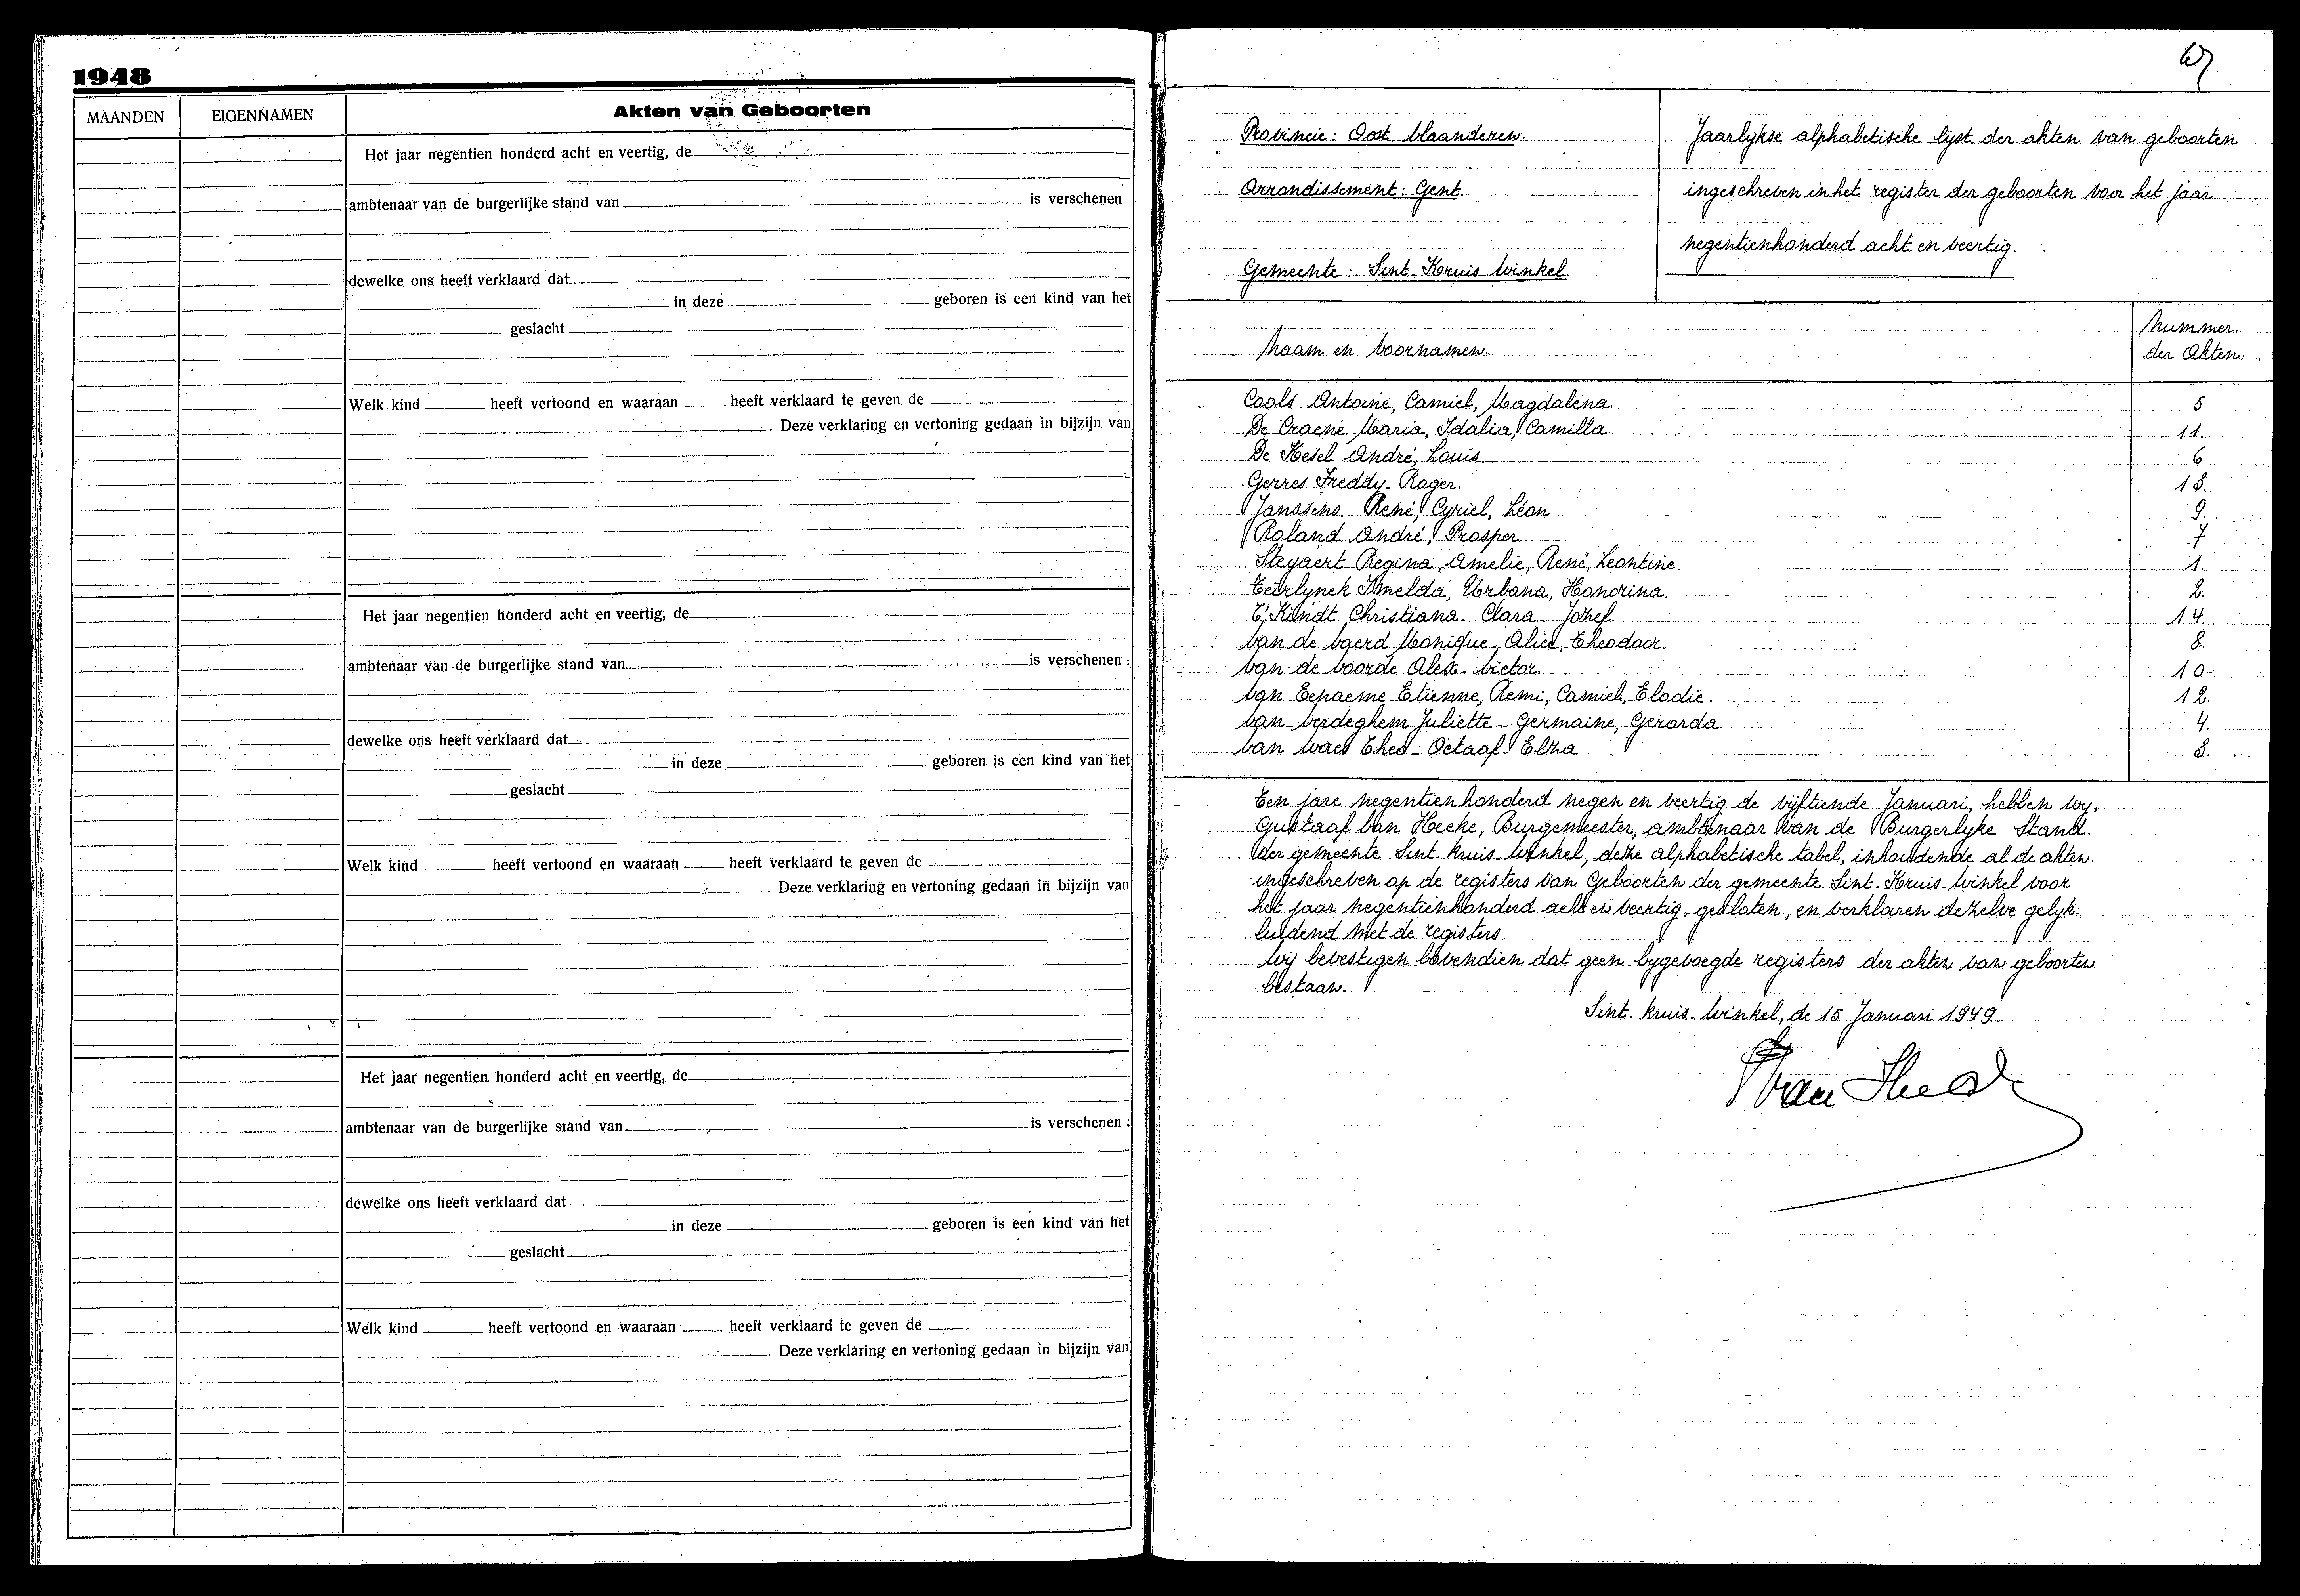 1948
MAANDEN
EIGENNAMEN
Akten van Geboorten
Het jaar negentien honderd acht en veertig, de
ambtenaar van de burgerlijke stand van is verschenen
dewelke ons heeft verklaard dat
in deze geboren is een kind van het
geslacht
Welk kind heeft vertoond en waaraan heeft verklaard te geven de
. Deze verklaring en vertoning gedaan in bijzijn van
Het jaar negentien honderd acht en veertig, de
ambtenaar van de burgerlijke stand van is verschenen :
dewelke ons heeft verklaard dat
in deze geboren is een kind van het
geslacht
Welk kind heeft vertoond en waaraan heeft verklaard te geven de
. Deze verklaring en vertoning gedaan in bijzijn van
Het jaar negentien honderd acht en veertig, de
ambtenaar van de burgerlijke stand van is verschenen :
dewelke ons heeft verklaard dat
in deze geboren is een kind van het
geslacht
Welk kind heeft vertoond en waaraan heeft verklaard te geven de
. Deze verklaring en vertoning gedaan in bijzijn van
Provincie: Oost Vlaanderen.
Arrondissement: Gent
Gemeente: Sint-Kruis-Winkel.
Jaarlykse alphabetische lijst der akten van geboorten
ingeschreven in het register der geboorten voor het jaar
negentienhonderd acht en veertig.
Naam en Voornamen.
Nummer
der Akten.
Cools Antoine, Camiel, Magdalena 5
De Craene Maria, Idalia, Camilla. 11.
De Kesel André, Louis. 6
Gerres Freddy-Roger. 13.
Janssens René, Cyriel, Léon 9.
Roland André, Prosper. 7
Steyaert Regina, Amelie, René, Leontine. 1.
Teirlynck Imelda, Urbana, Honorina. 2.
T'Kindt Christiana-Clara-Jozef. 14.
Van de Vaerd Monique-Alice, Theodoor. 8.
Van de Voorde Alex-Victor. 10.
Van Eenaeme Etienne, Remi, Camiel, Elodie. 12.
Van Verdeghem Juliette-Germaine, Gerarda. 4.
Van Waes Theo-Octaaf-Elza 3.
Ten jare negentienhonderd negen en veertig de vijftiende Januari, hebben Wy,
Gustaaf Van Hecke, Burgemeester, ambtenaar van de Burgerlyke Stand.
der gemeente Sint-Kruis-Winkel, deze alphabetische tabel, inhoudende al de akten
ingeschreven op de registers van Geboorten der gemeente Sint-Kruis-Winkel voor
het jaar negentienhonderd acht en veertig, gesloten, en verklaren dezelve gelyk-
luidend met de registers.
Wij bevestigen bovendien dat geen bygevoegde registers der akten van geboorten
bestaan.
Sint-Kruis-Winkel, de 15 Januari 1949.